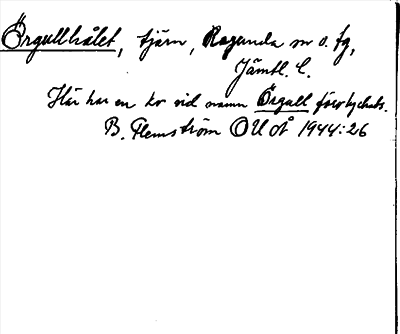 Örgullhålet, tjärn, Ragunda sn o. tg,
Jämtl. l.
Här har en ko vid namn Örgull förolyckats.
B. Flemström OUoÅ 1944:26